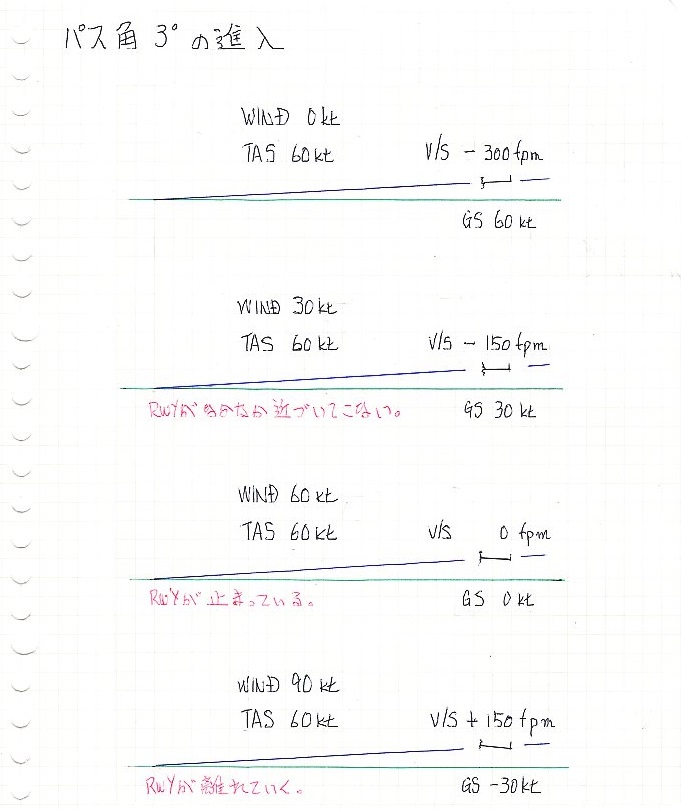 パス角 3°の進入
WIND 0kt
TAS 60kt V/S - 300fpm
GS 60kt
WIND 30kt
TAS 60kt V/S - 150fpm
RWYがなかなか近づいてこない。 GS 30kt
WIND 60kt
TAS 60kt V/S 0 fpm
RWYが止まっている。 GS 0kt
WIND 90kt
TAS 60kt V/S + 150fpm
RWYが離れていく。 GS -30kt